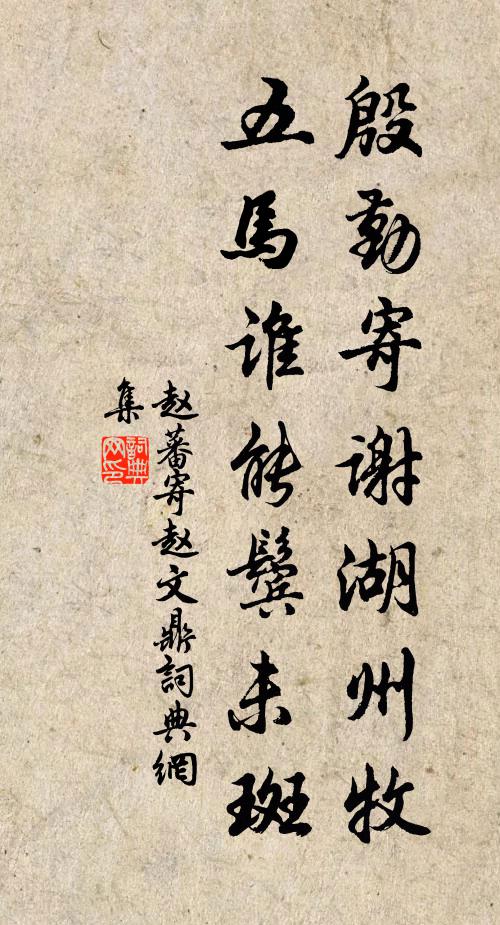 殷勤寄谢湖州牧
五馬谁能鬓未斑
赵蕃寄赵文鼎詞典網
集
詞典
网印